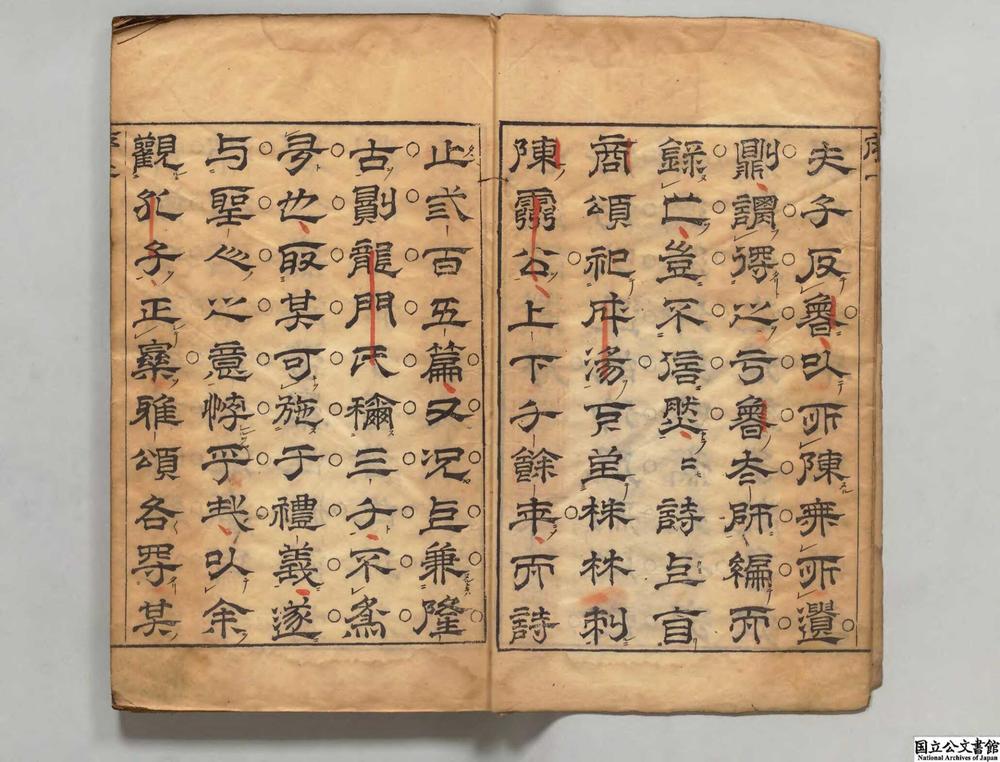 夫子反魯以所陳無所遺
則謂得之于魯太師編而
錄之豈不信然〻詩且自
商頌祀成湯下至株林刺
陳靈公上下千餘年而詩
止弍百五篇又况且兼隆
古則龍門氏稱三千不為
多也取其可施于禮義遂
与聖心之意悖乎哉以余
觀孔子正樂雅頌各得其
国立公文書館
National Archives of Japan